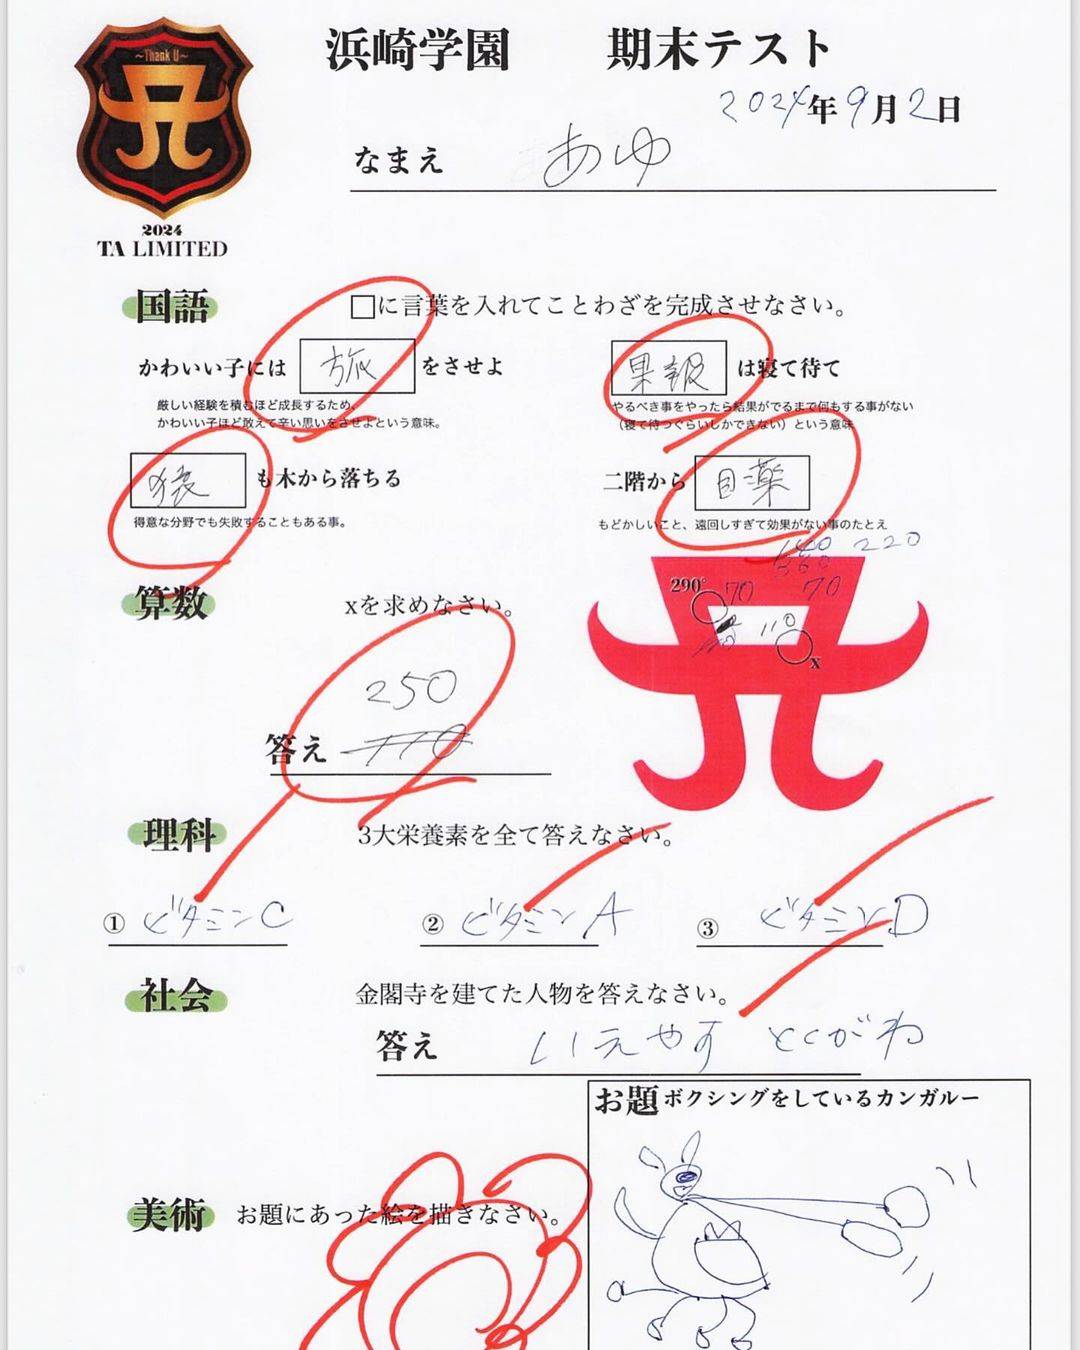 ~Thank U~
2024
TA LIMITED
浜崎学園 期末テスト
2024年9月2日
なまえ あゆ
国語 □に言葉を入れてことわざを完成させなさい。
かわいい子には 旅 をさせよ
厳しい経験を積むほど成長するため、
かわいい子ほど敢えて辛い思いをさせよという意味。
果報 は寝て待て
やるべき事をやったら結果がでるまで何もする事がない
（寝て待つぐらいしかできない）という意味
猿 も木から落ちる
得意な分野でも失敗することもある事。
二階から 目薬
もどかしいこと、遠回しすぎて効果がない事のたとえ
算数 xを求めなさい。
220
290° 70 70
110
x
250
答え 110
理科 3大栄養素を全て答えなさい。
① ビタミンC ② ビタミンA ③ ビタミンD
社会 金閣寺を建てた人物を答えなさい。
答え いえやす とくがわ
美術 お題にあった絵を描きなさい。
お題 ボクシングをしているカンガルー